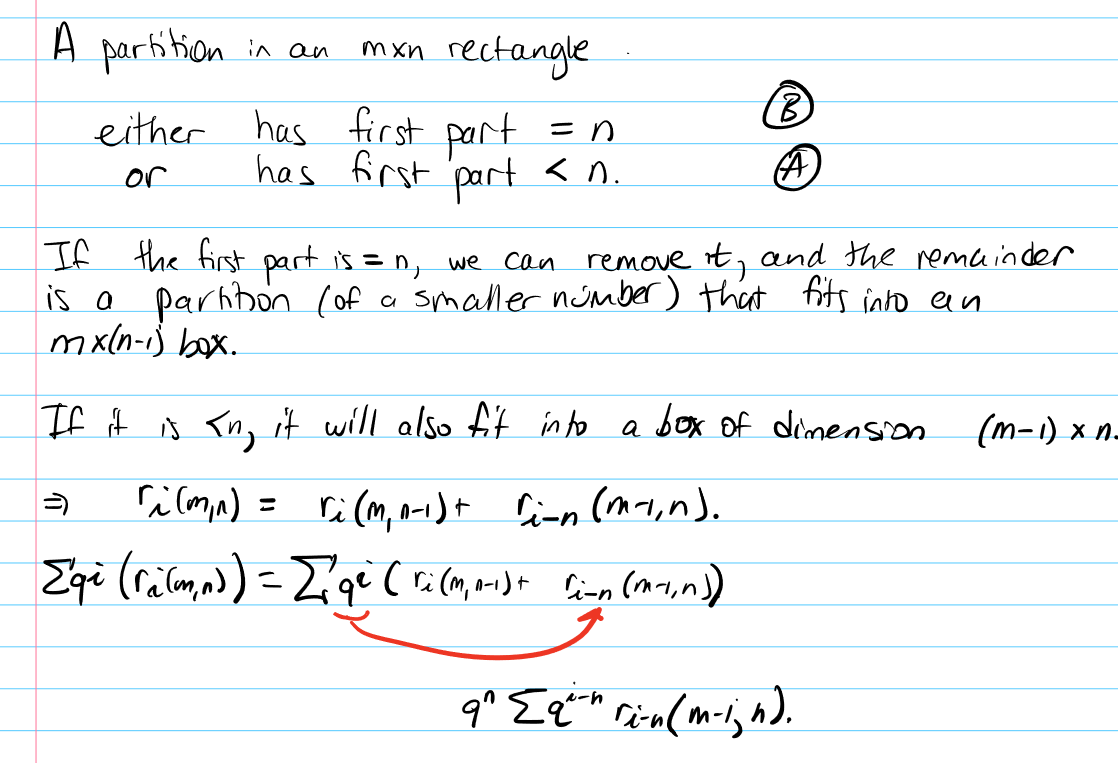 A partition in an mxn rectangle.
either has first part = n Ⓑ
or has first part < n. Ⓐ
If the first part is = n, we can remove it, and the remainder
is a partition (of a smaller number) that fits into an
m x(n-1) box.
If it is <n, it will also fit into a box of dimension (m-1) x n.
⇒ rᵢ(m,n) = rᵢ(m, n-1) + rᵢ₋ₙ(m-1, n).
Σqⁱ(rᵢ(m,n)) = Σqⁱ(rᵢ(m, n-1) + rᵢ₋ₙ(m-1, n))
qⁿ Σqⁱ⁻ⁿ rᵢ₋ₙ(m-1, n).